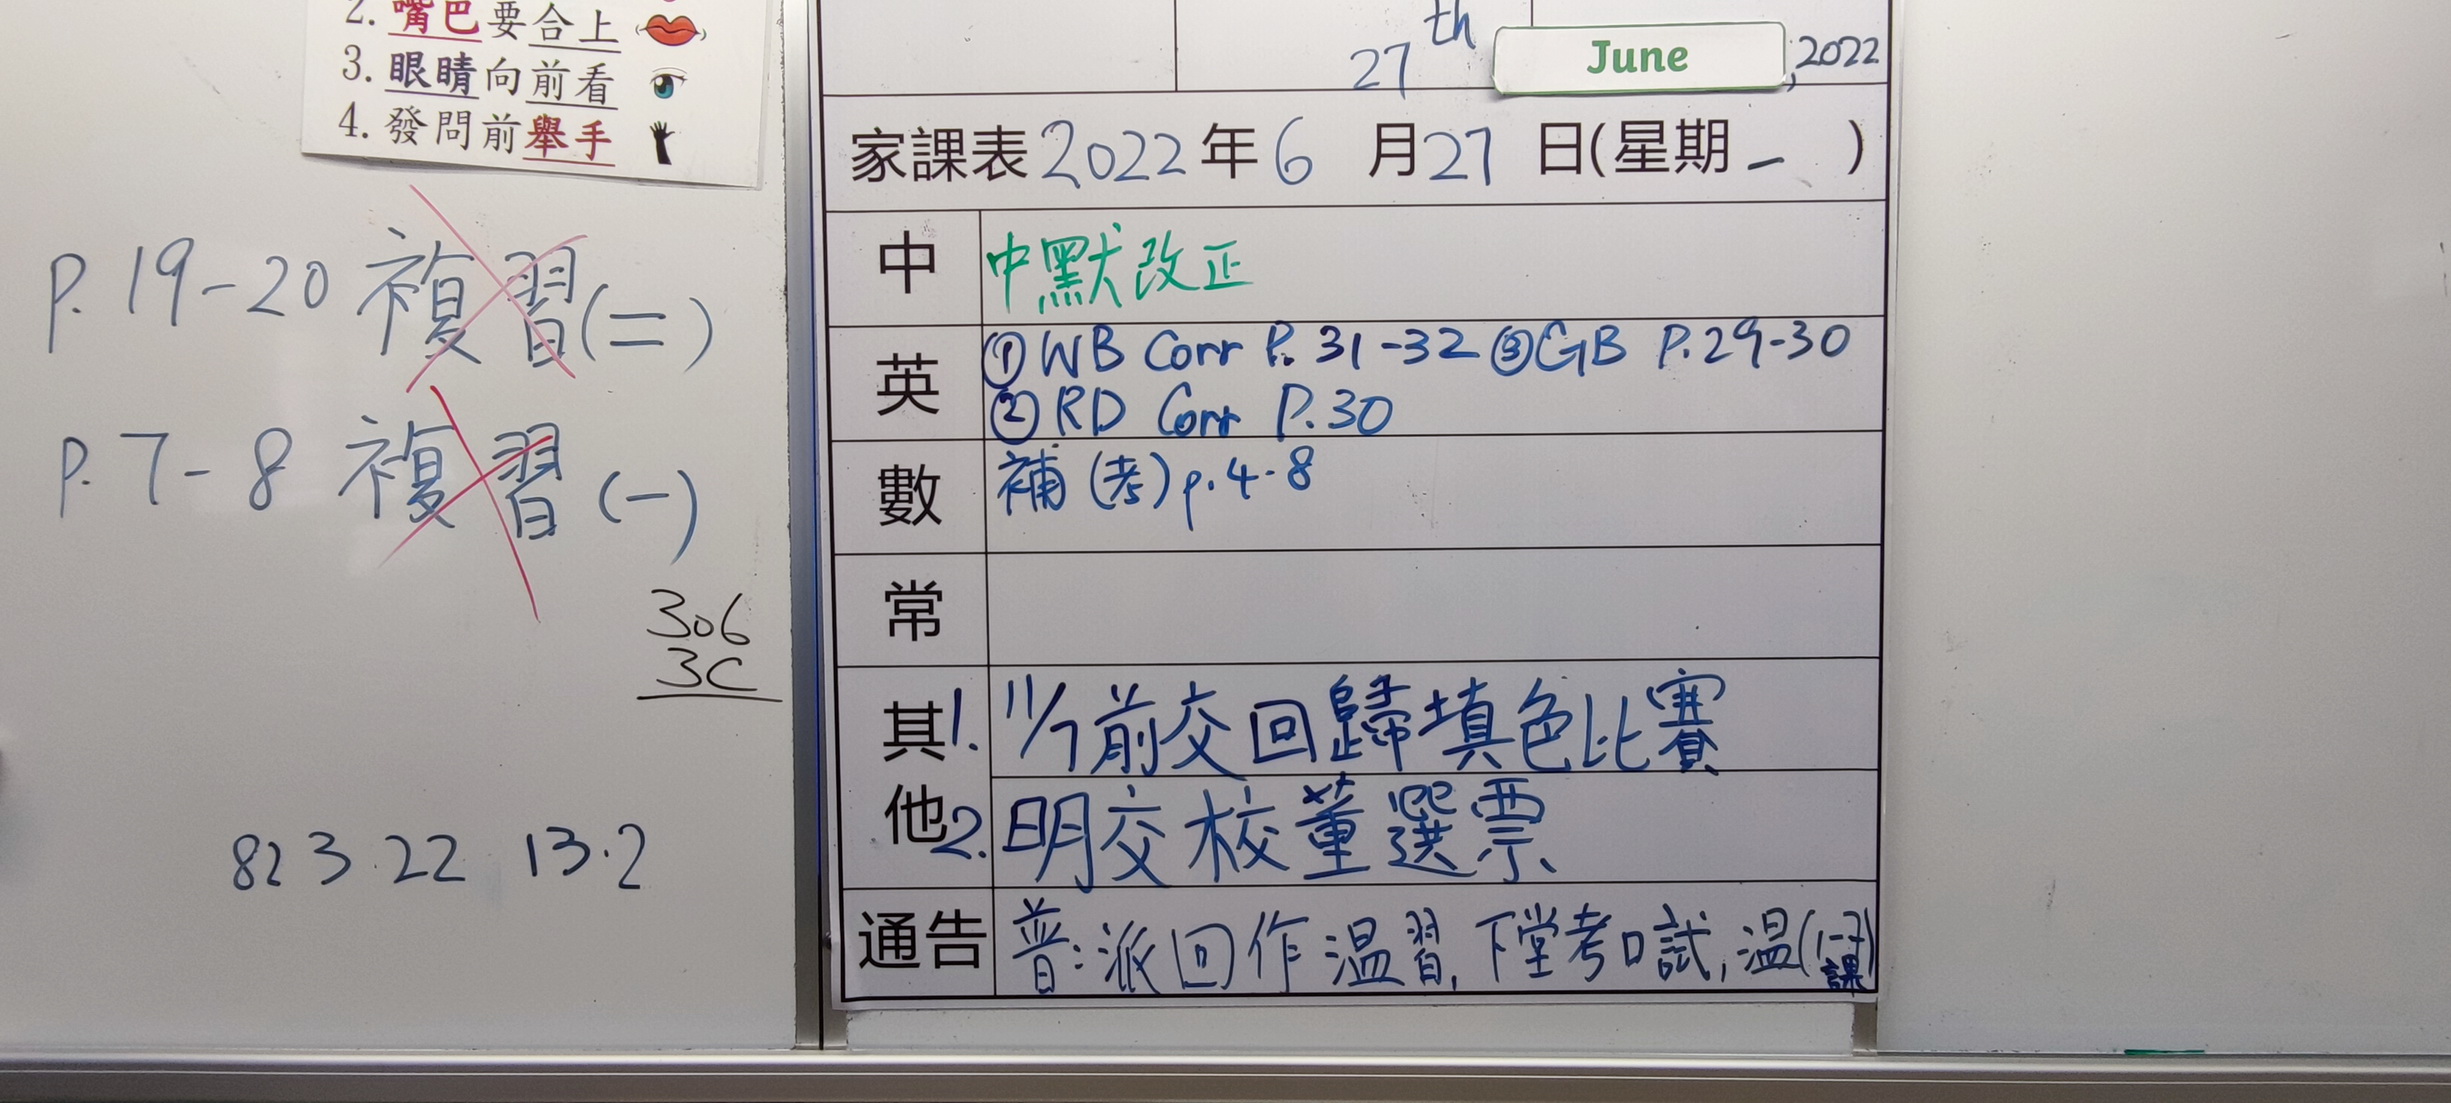 2. 嘴巴要合上
3. 眼睛向前看
4. 發問前舉手
P. 19-20 複習(二)
P. 7-8 複習(一)
306
3C
823.22 13.2
27th June, 2022
家課表 2022年6月27日(星期一)
中 中默改正
英 ① WB Corr P. 31-32 ③ GB P. 29-30
② RD Corr P. 30
數 補(考) p. 4-8
常
其他 1. 11/7前交回歸填色比賽
2. 明交校董選票
通告 普:派回作溫習,下堂考口試,溫(1-7課)